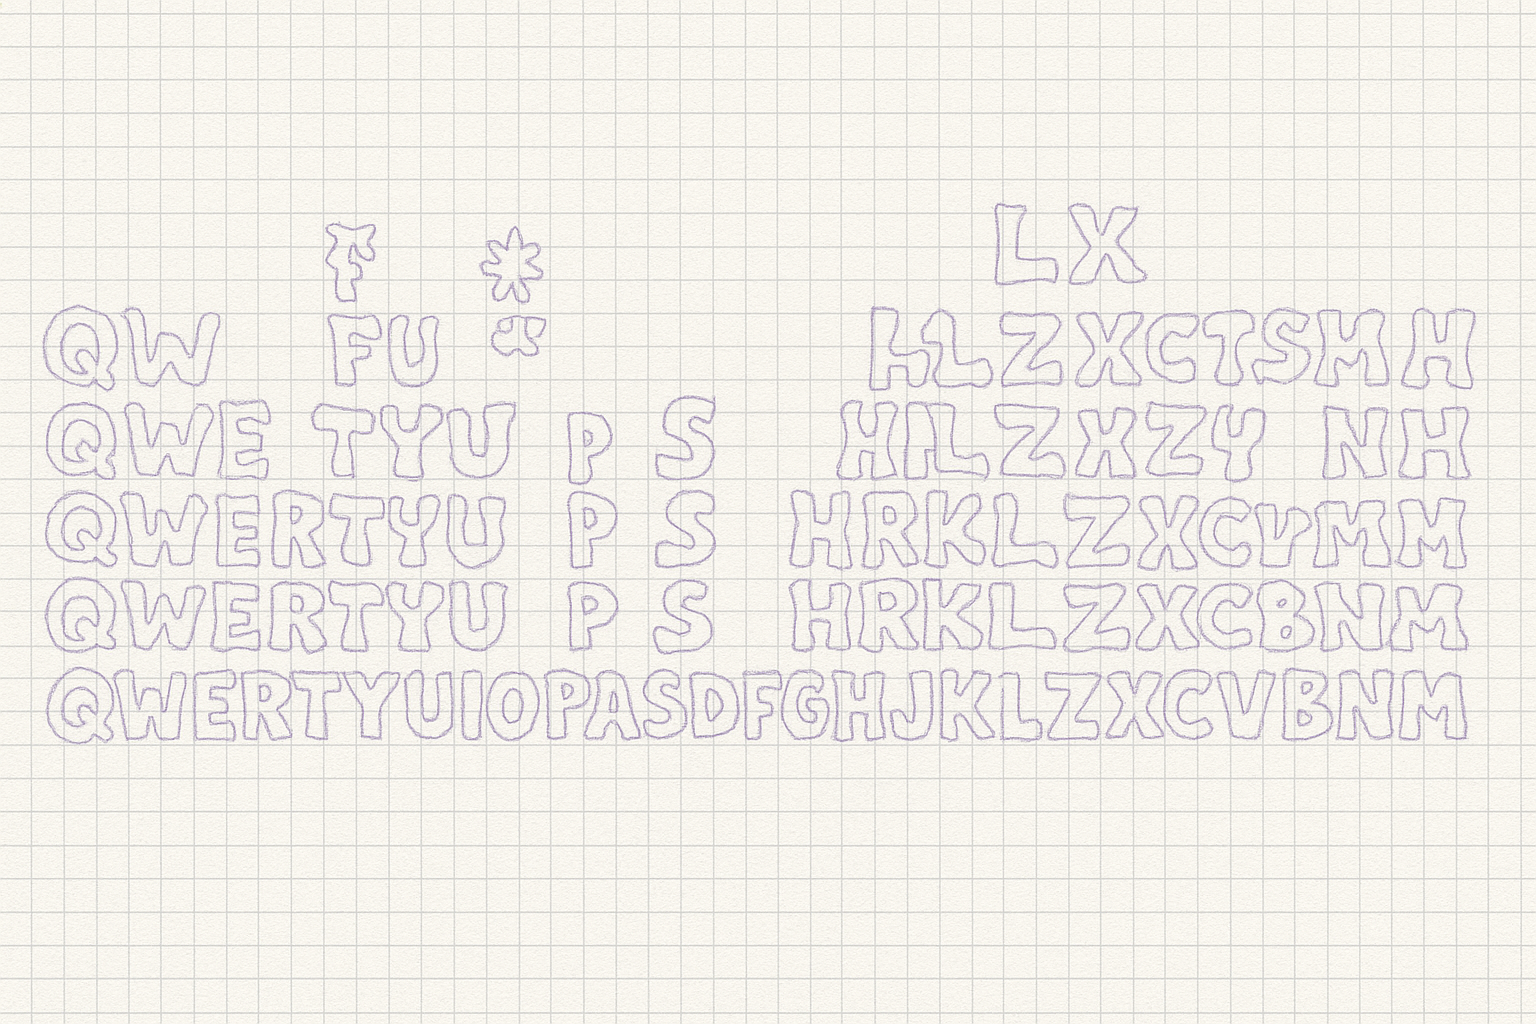 LX
F *
QW FU LZXCTSMH
QWE TYU P S HILZXZY NH
QWERTYU P S HRKLZXCVMM
QWERTYU P S HRKLZXCBNM
QWERTYUIOPASDFGHJKLZXCVBNM